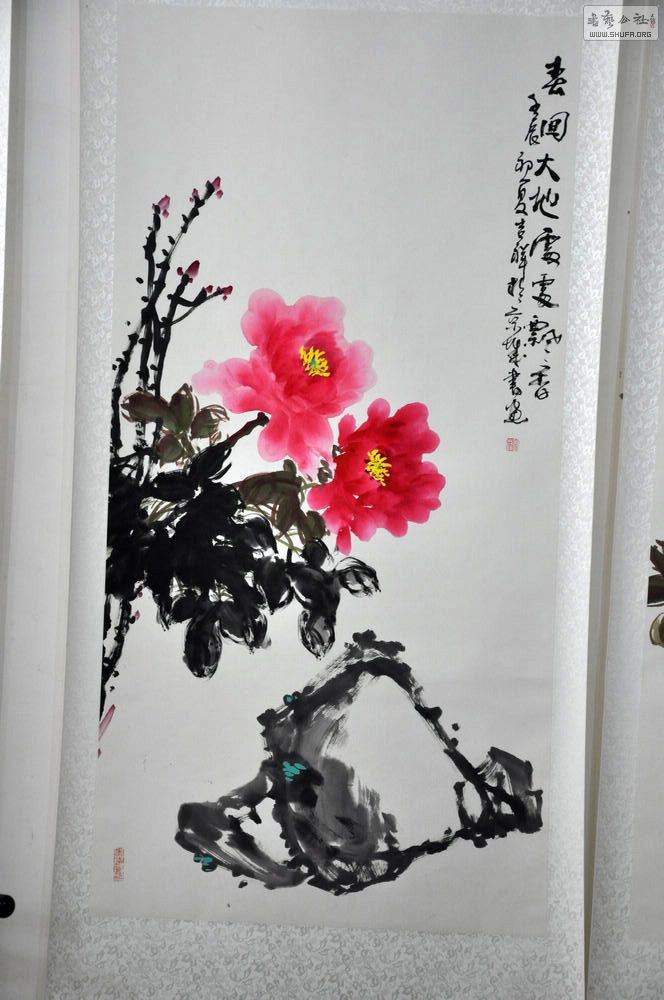 春回大地處處飄香
壬辰初夏吉祥於京城書畫
書藝公社
WWW.SHUFA.ORG